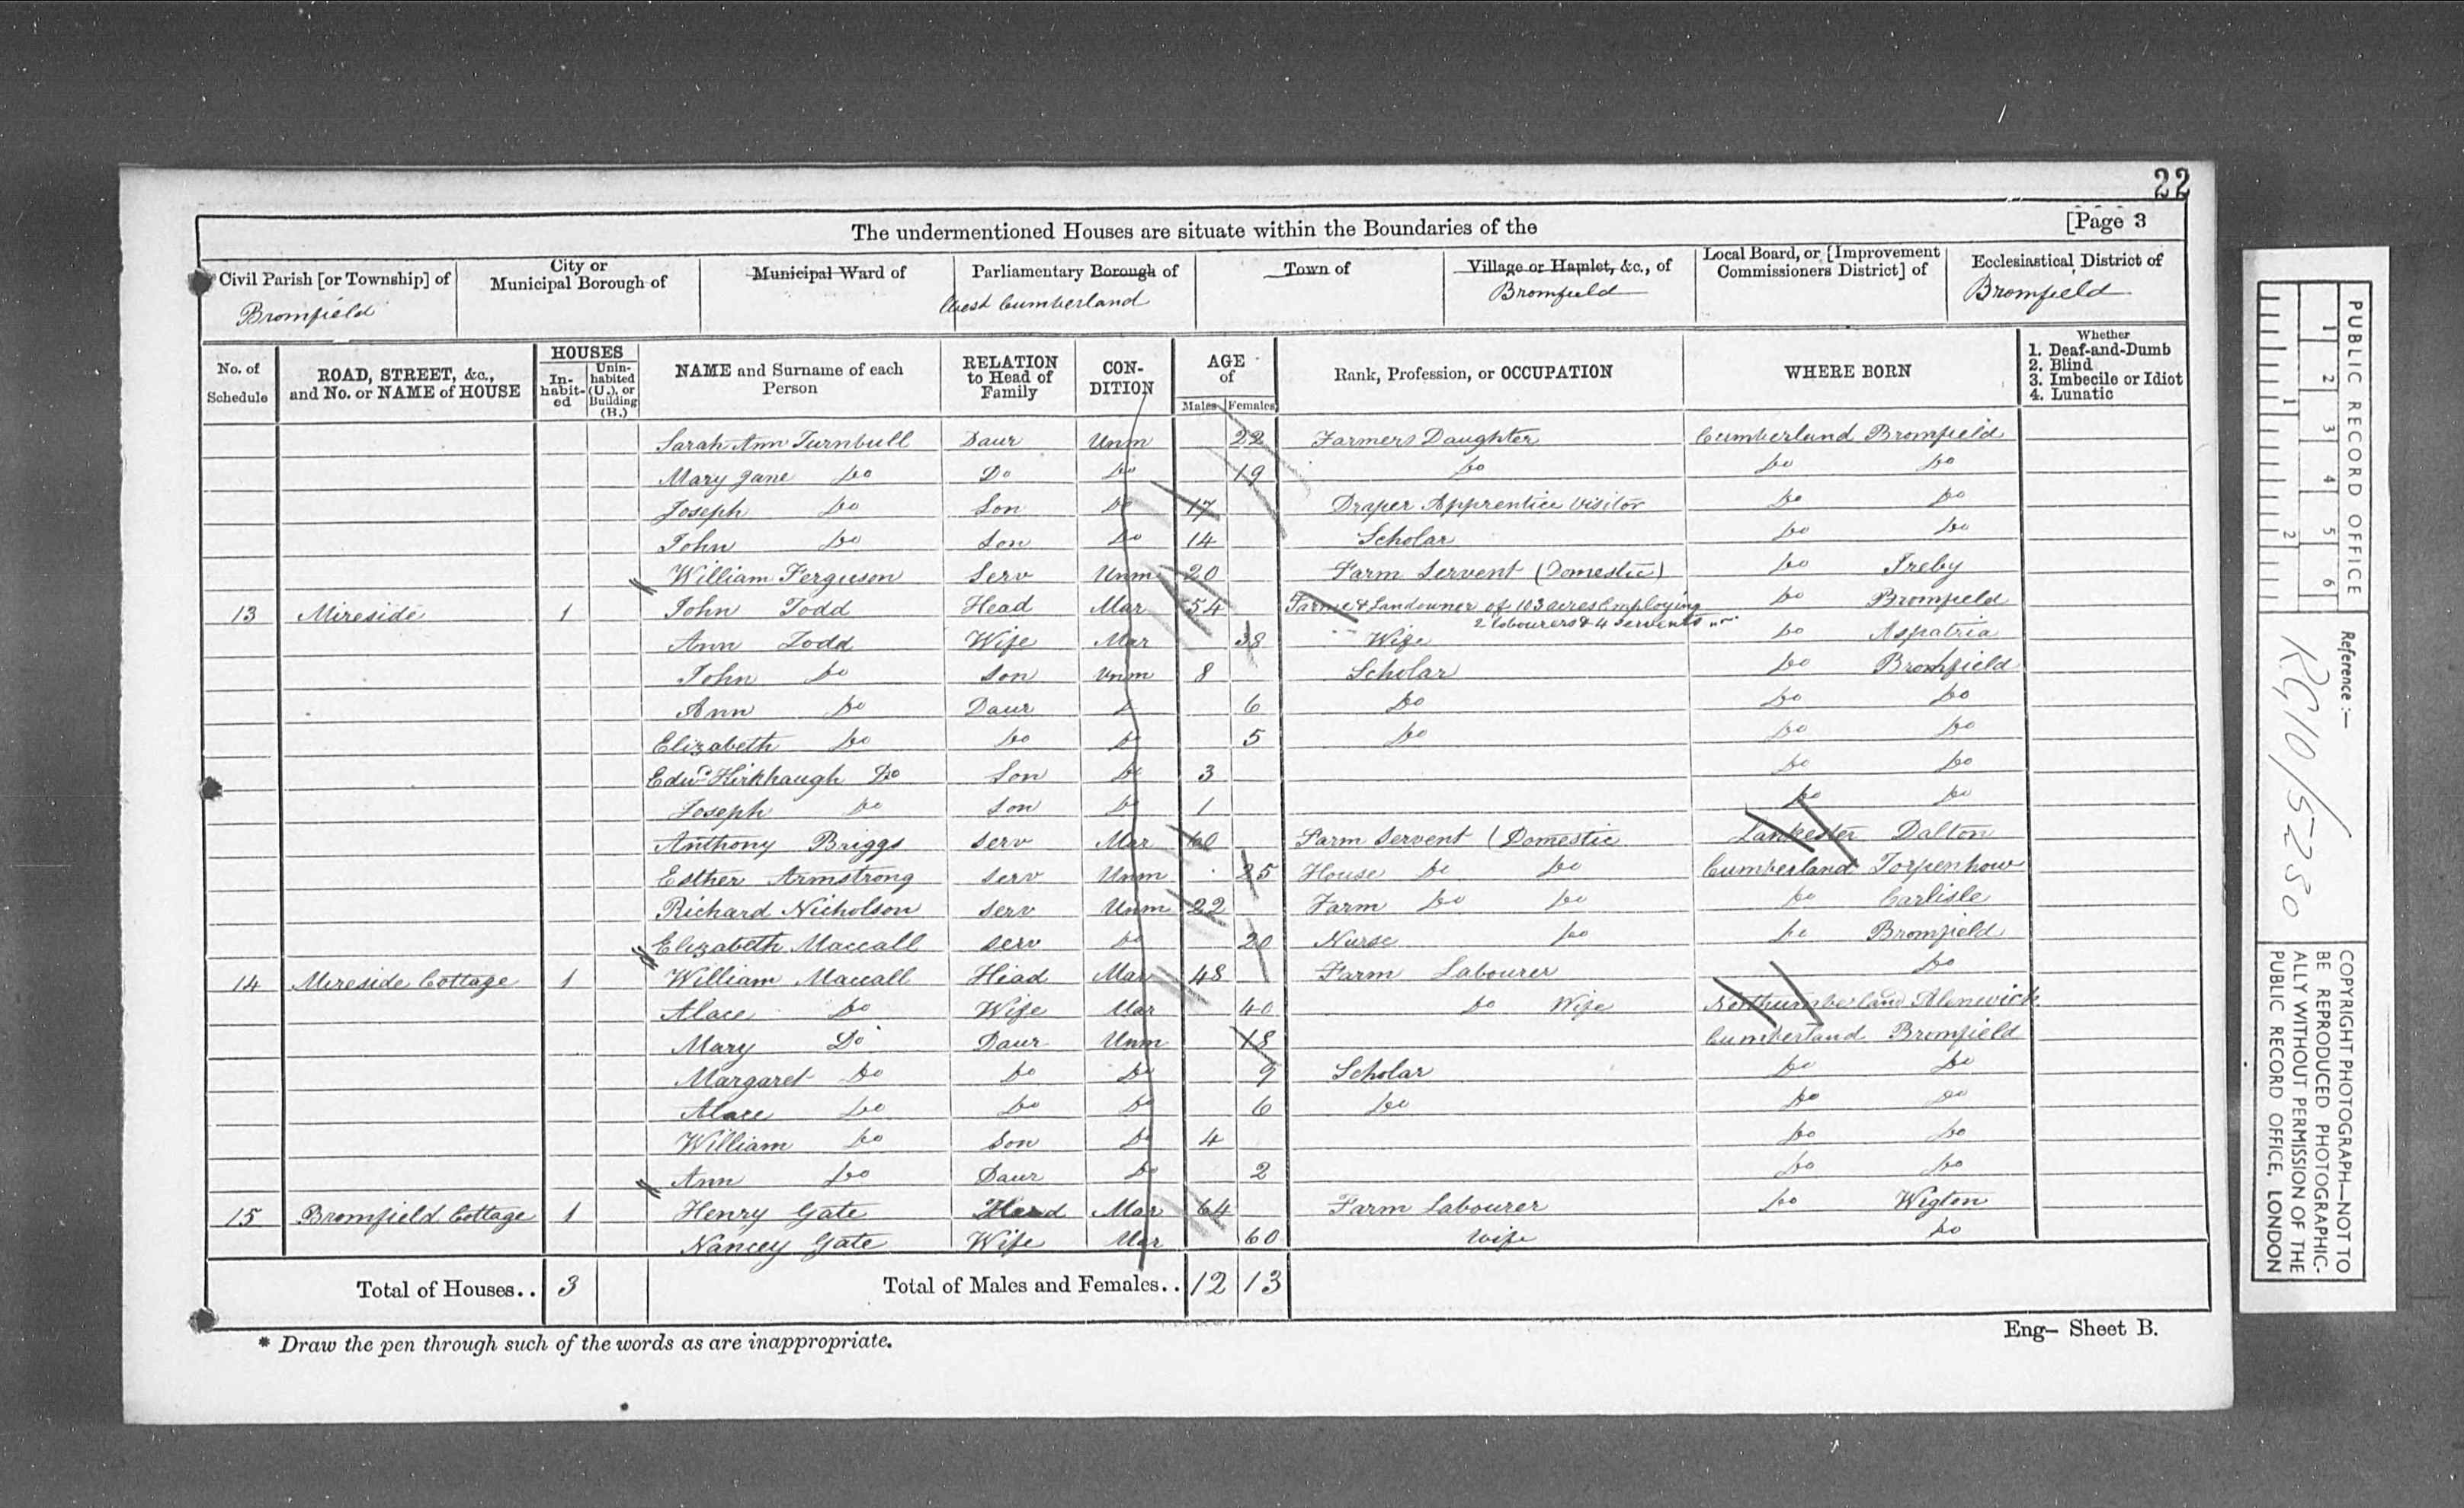 22
The undermentioned Houses are situate within the Boundaries of the [Page 3
Civil Parish [or Township] of
Bromfield
City or
Municipal Borough of
Municipal Ward of
Parliamentary Borough of
West Cumberland
Town of
Village or Hamlet, &c., of
Bromfield
Local Board, or [Improvement
Commissioners District] of
Ecclesiastical District of
Bromfield
No. of
Schedule
ROAD, STREET, &c.,
and No. or NAME of HOUSE
HOUSES
In-
habit-
ed
Unin-
habited
(U.), or
Building
(B.)
NAME and Surname of each
Person
RELATION
to Head of
Family
CON-
DITION
AGE
of
Males Females
Rank, Profession, or OCCUPATION
WHERE BORN
Whether
1. Deaf-and-Dumb
2. Blind
3. Imbecile or Idiot
4. Lunatic
Sarah Ann Turnbull Daur Unm 22 Farmers Daughter Cumberland Bromfield
Mary Jane Do Do Do 19 Do Do Do
Joseph Do Son Do 17 Draper Apprentice Visitor Do Do
John Do Son Do 14 Scholar Do Do
William Ferguson Serv Unm 20 Farm Servent (Domestic) Do Ireby
13 Mireside 1 John Todd Head Mar 54 Farme & Landowner of 103 acres Employing Do Bromfield
2 labourers & 4 Servents
Ann Todd Wife Mar 38 Wife Do Aspatria
John Do Son Unm 8 Scholar Do Bromfield
Ann Do Daur D 6 Do Do Do
Elizabeth Do Do Do 5 Do Do Do
Edwd Kirkhaugh Do Son Do 3 Do Do
Joseph Do Son Do 1 Do Do
Anthony Briggs Serv Mar 60 Farm Servent (Domestic Lankester Dalton
Esther Armstrong Serv Unm 25 House Do Do Cumberland Torpenhow
Richard Nicholson Serv Unm 22 Farm Do Do Do Carlisle
Elizabeth Maccall Serv Do 20 Nurse Do Do Bromfield
14 Mireside Cottage 1 William Maccall Head Mar 48 Farm Labourer Do
Alace Do Wife Mar 40 Do Wife Northumberland Alenwick
Mary Do Daur Unm 18 Cumberland Bromfield
Margaret Do Do Do 9 Scholar Do Do
Alace Do Do Do 6 Do Do Do
William Do Son Do 4 Do Do
Ann Do Daur Do 2 Do Do
15 Bromfield Cottage 1 Henry Gate Head Mar 64 Farm Labourer Do Wigton
Nancey Gate Wife Mar 60 Wife Do
Total of Houses.. 3 Total of Males and Females.. 12 13
* Draw the pen through such of the words as are inappropriate.
Eng- Sheet B.
PUBLIC RECORD OFFICE
1 2 3 4 5 6
1 2
Reference :-
RG10/5230
COPYRIGHT PHOTOGRAPH—NOT TO
BE REPRODUCED PHOTOGRAPHIC-
ALLY WITHOUT PERMISSION OF THE
PUBLIC RECORD OFFICE, LONDON